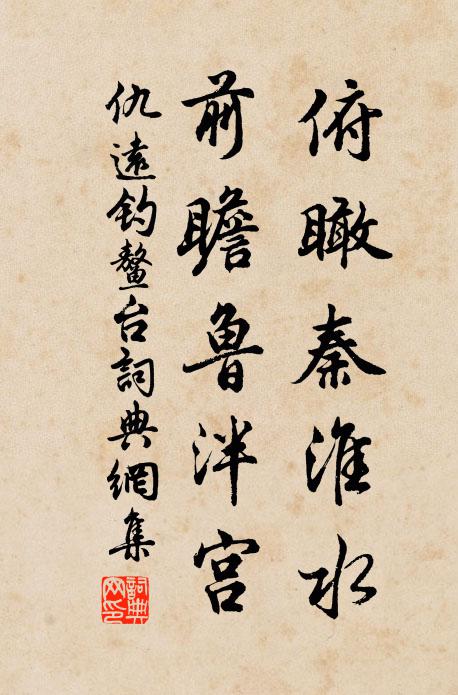 俯瞰秦淮水
前瞻鲁泮宫
仇遠钓鳌台詞典網集
詞典网印